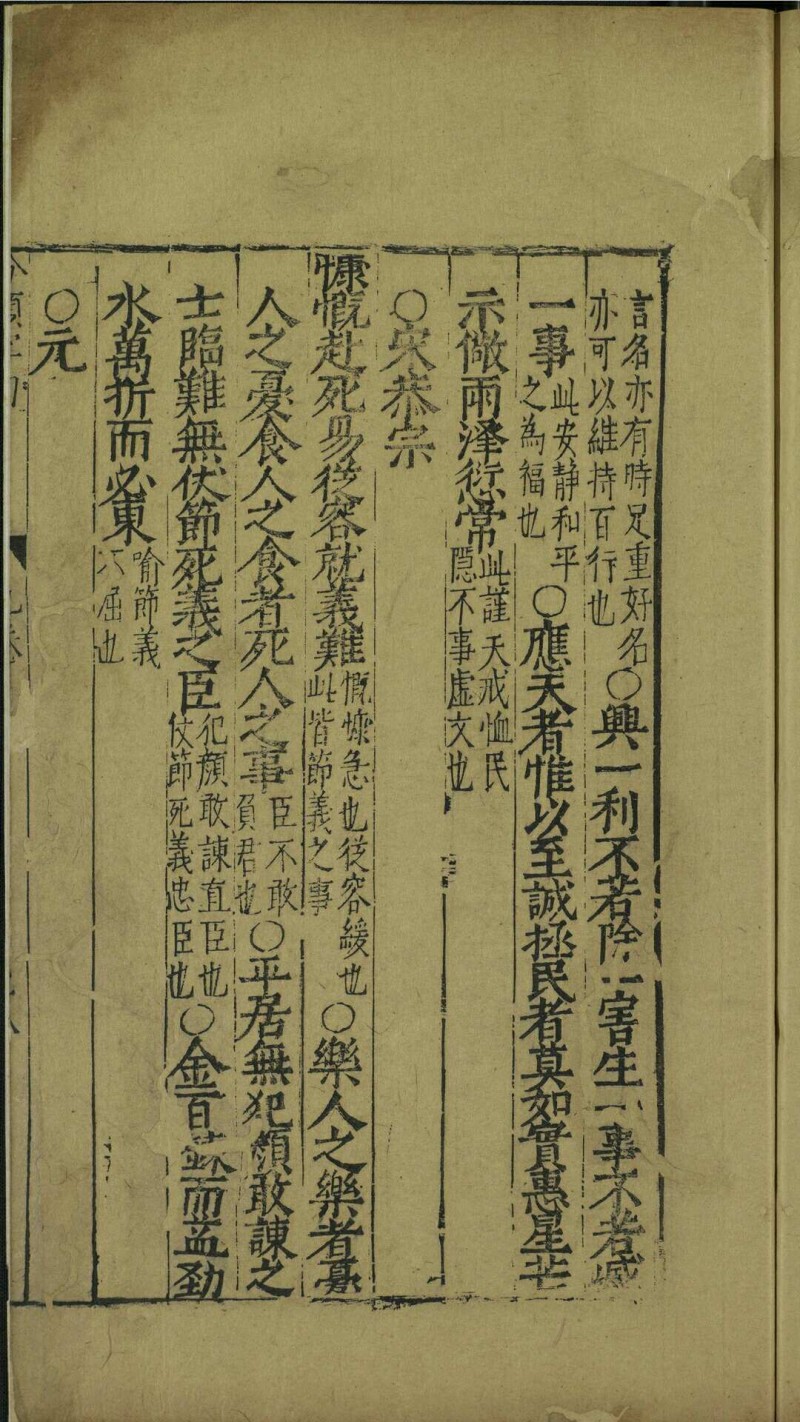 言名亦有時足重好名亦可以維持百行也○興一利不若除一害生一事不若减
一事此安静和平之為福也○應天者惟以至誠拯民者莫如實惠星芒
示儆雨泽愆常此謹天戒恤民隠不事虚文也
○宋恭宗
慷慨赴死易従容就義難慨慷急也従容緩也此皆節義之事○樂人之樂者憂
人之憂食人之食者死人之事臣不敢負君也○平居無犯顔敢諫之
士臨難無伏節死義之臣犯顔敢諫直臣也仗節死義忠臣也○金百鍊而益勁
水萬折而必東喻節義不屈也
○元